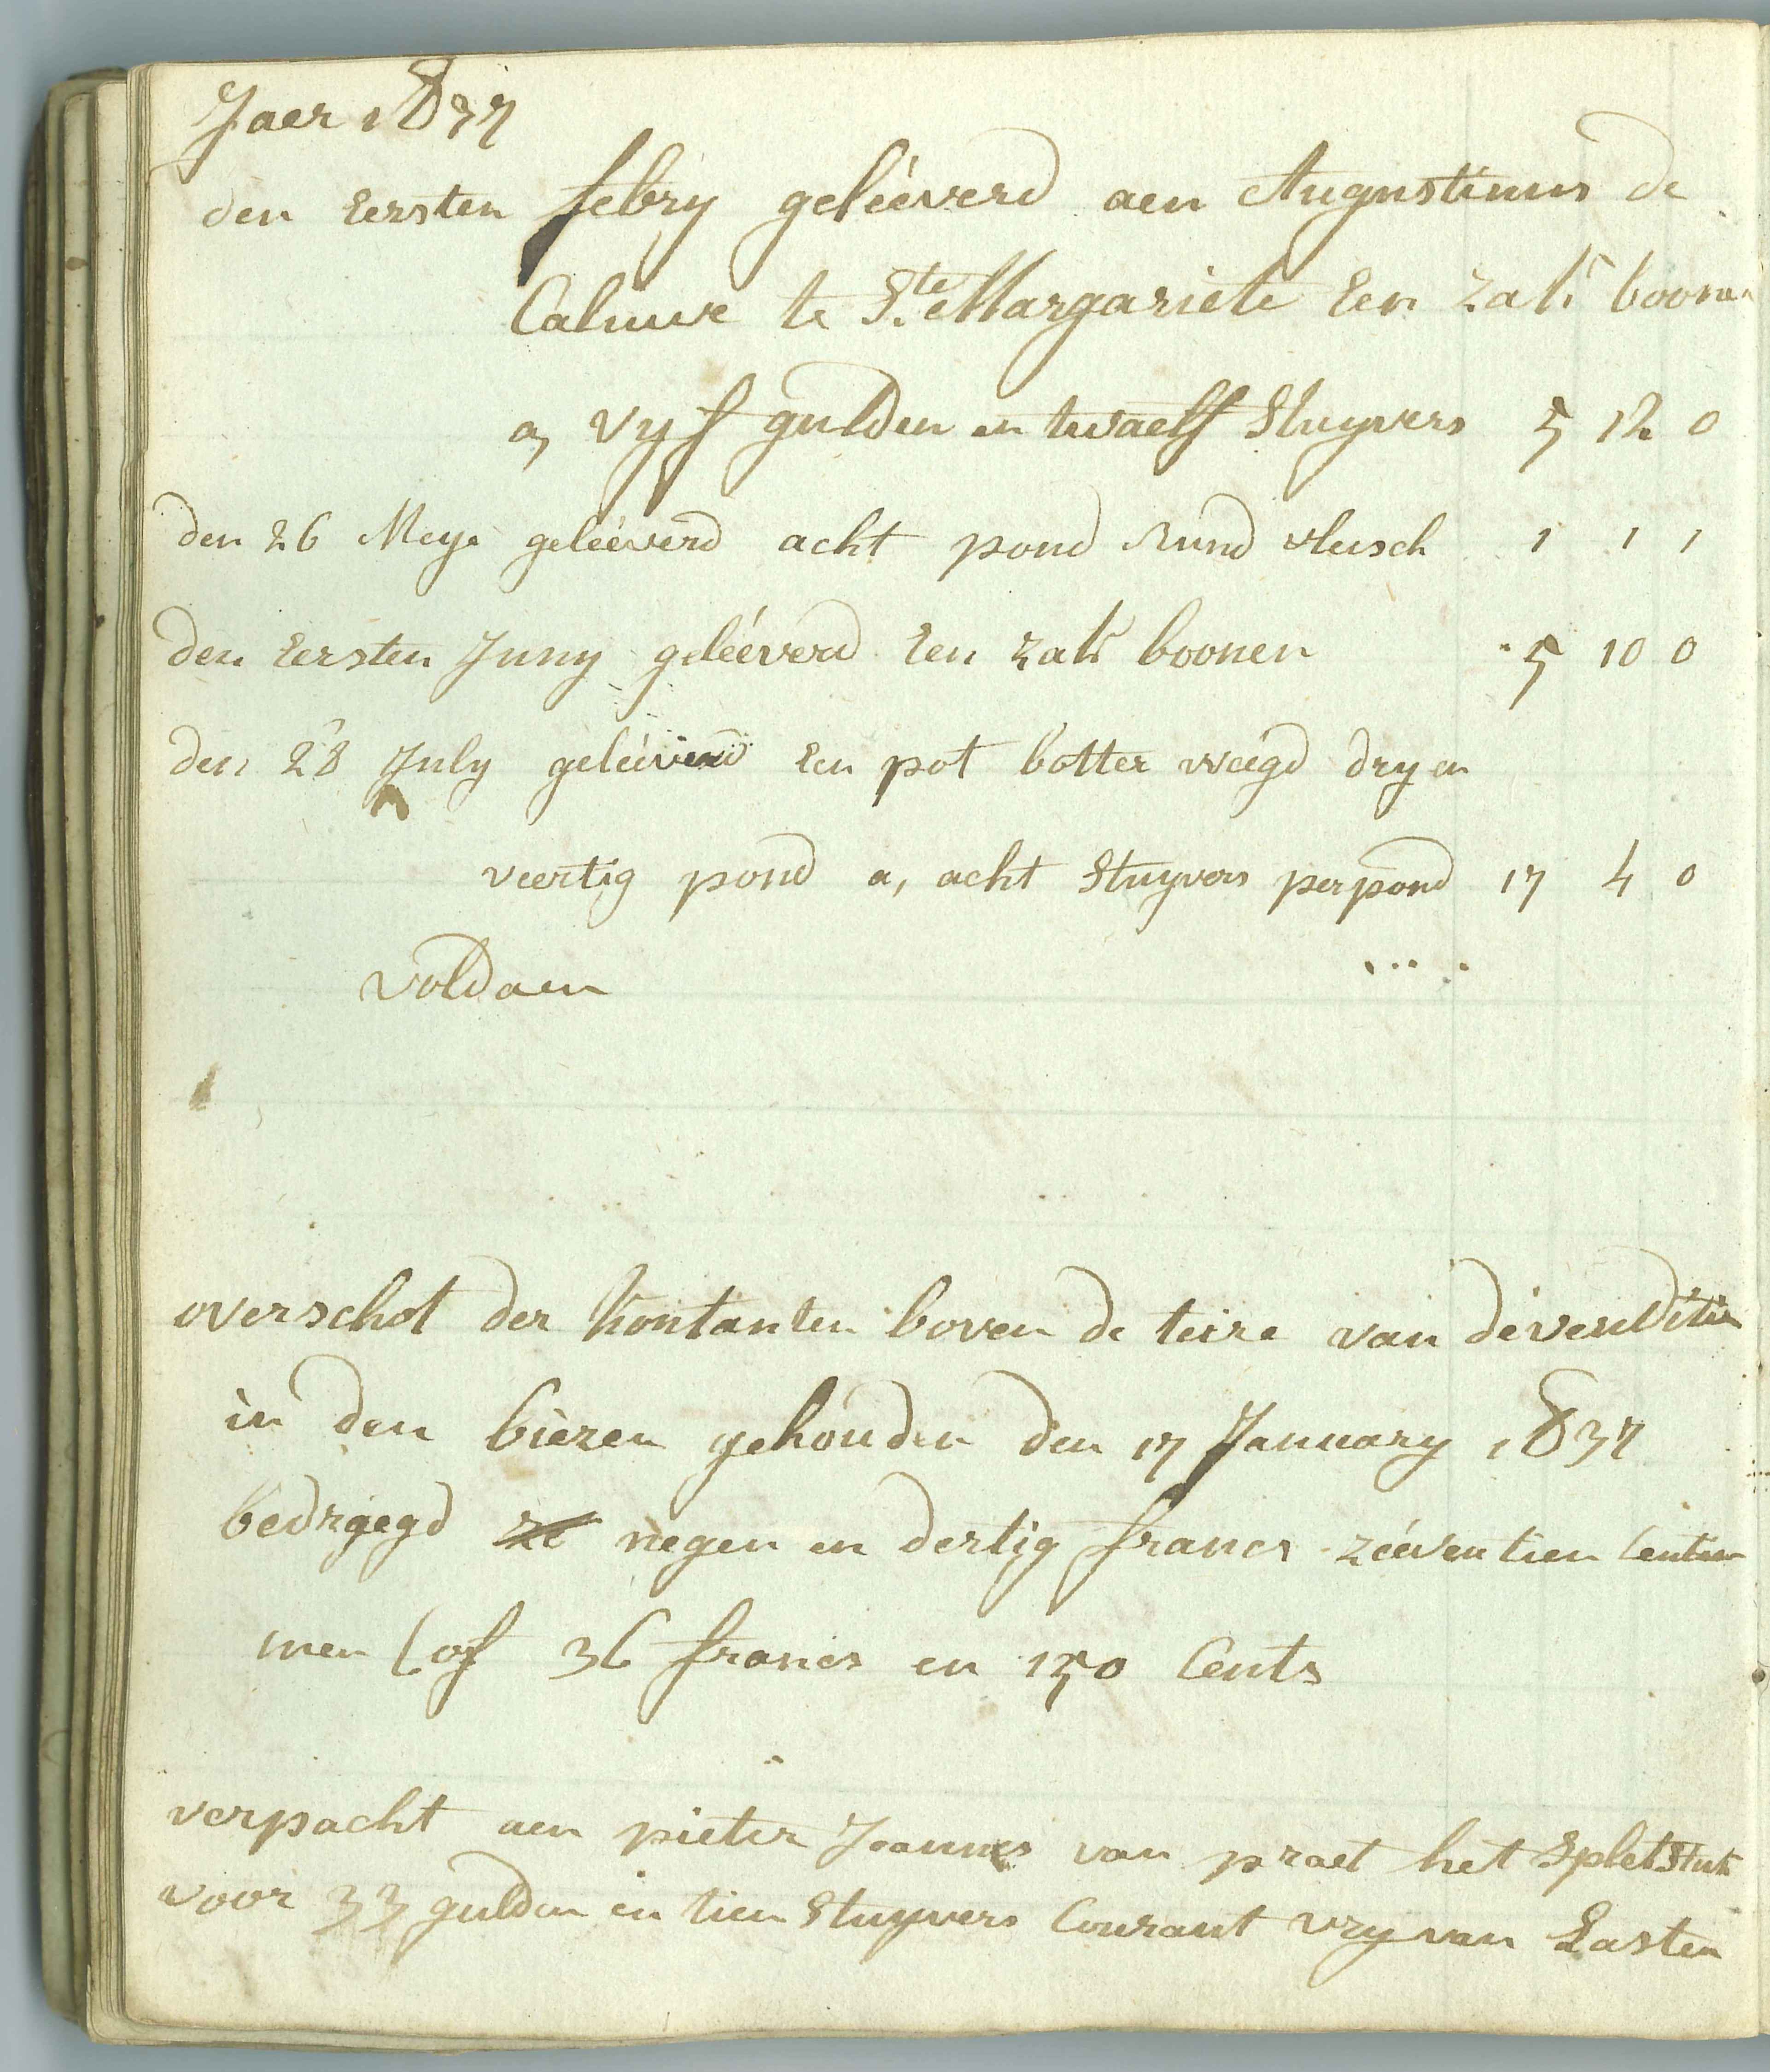 Jaer 1837
den Eersten febry geléeverd aen Augustinus de
Caluwe te Ste Margariete Een zak boonen
a, vyf gulden en twaelf Stuyvers 5 12 0
den 26 Meye geléeverd acht pond Rund vleesch 1 1 1
den Eersten Juny geléeverd Een zak boonen 5 10 0
den 28 July geléeverd Een pot botter weegd dry en
veertig pond a, acht Stuyvers per pond 17 4 0
voldaen
overschot der kontanten boven de teire van de venditie
in den biezen gehouden den 17 January 1837
bedrgegd ze negen en dertig francs zéeventien Centie
men (of 36 francs en 150 Cents
verpacht aen pieter Joannes van praet het Spletstuk
voor 33 gulden en tien Stuyvers Courant vry van Lasten